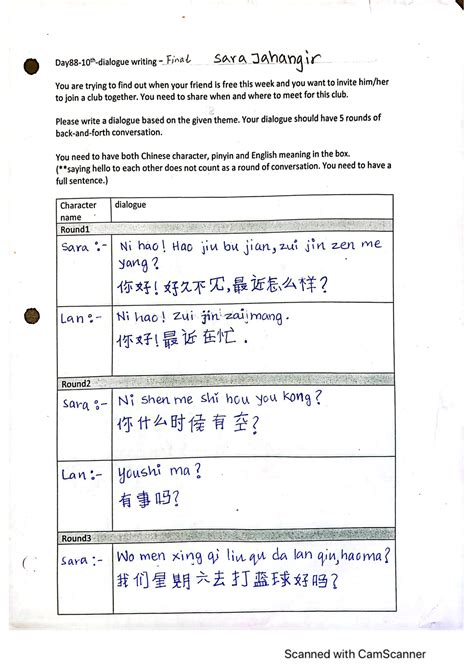 Day88-10th-dialogue writing – Final Sara Jahangir
You are trying to find out when your friend is free this week and you want to invite him/her
to join a club together. You need to share when and where to meet for this club.
Please write a dialogue based on the given theme. Your dialogue should have 5 rounds of
back-and-forth conversation.
You need to have both Chinese character, pinyin and English meaning in the box.
(**saying hello to each other does not count as a round of conversation. You need to have a
full sentence.)
Character name
dialogue
Round1
Sara :-
Ni hao! Hao jiu bu jian, zui jin zen me
yang?
你好!好久不见,最近怎么样?
Lan :-
Ni hao! Zui jin zai mang.
你好!最近在忙.
Round2
Sara :-
Ni shen me shi hou you kong?
你什么时候有空?
Lan :-
Youshi ma?
有事吗?
Round3
Sara :-
Wo men xing qi liu qu da lan qiu, hao ma?
我们星期六去打篮球好吗?
Scanned with CamScanner